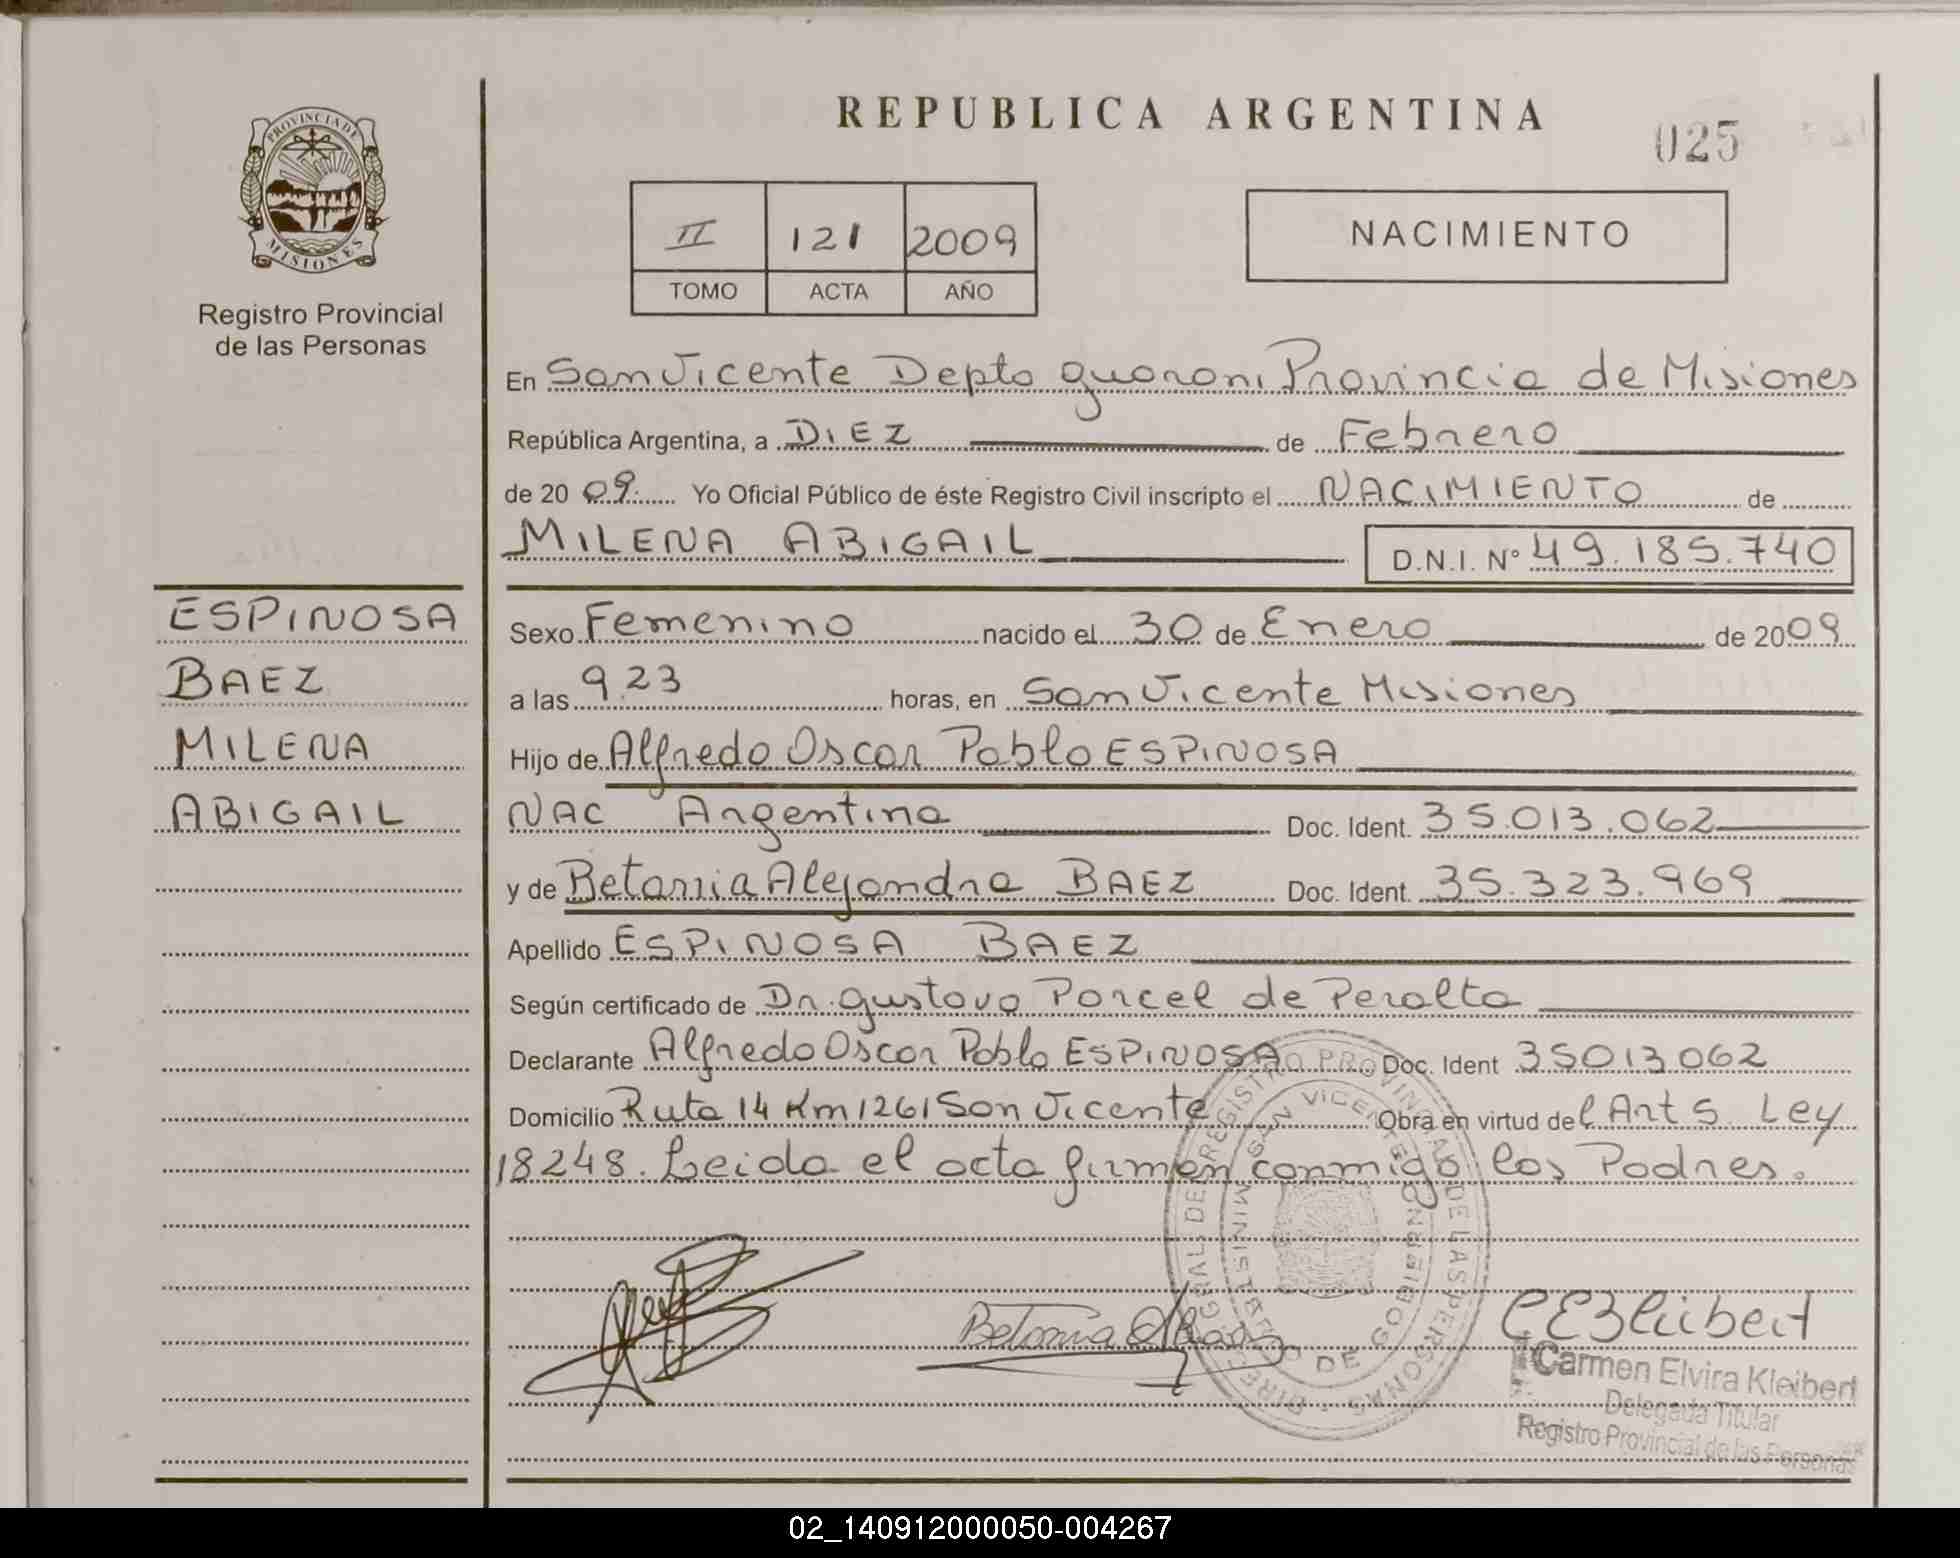 PROVINCIA DE
MISIONES
Registro Provincial
de las Personas
REPUBLICA ARGENTINA
025
II 121 2009
TOMO ACTA AÑO
NACIMIENTO
En San Vicente Depto guarani Provincia de Misiones
República Argentina, a DIEZ de Febrero
de 20 09 Yo Oficial Público de éste Registro Civil inscripto el NACIMIENTO de
MILENA ABIGAIL D.N.I. Nº 49.185.740
ESPINOSA
BAEZ
MILENA
ABIGAIL
Sexo Femenino nacido el 30 de Enero de 2009
a las 9.23 horas, en San Vicente Misiones
Hijo de Alfredo Oscar Pablo ESPINOSA
NAC Argentina Doc. Ident. 35.013.062
y de Betania Alejandra BAEZ Doc. Ident. 35.323.969
Apellido ESPINOSA BAEZ
Según certificado de Dr. gustavo Porcel de Peralta
Declarante Alfredo Oscar Pablo ESPINOSA Doc. Ident 35013062
Domicilio Ruta 14 Km 1261 San Vicente Obra en virtud del Art 5. Ley
18248. Leida el acta firman conmigo los Padres.
DIRECCION GENERAL DE REGISTRO PROVINCIAL DE LAS PERSONAS
SAN VICENTE
MINISTERIO DE GOBIERNO
Betania
CEKleibert
Carmen Elvira Kleibert
Delegada Titular
Registro Provincial de las Personas
02_140912000050-004267